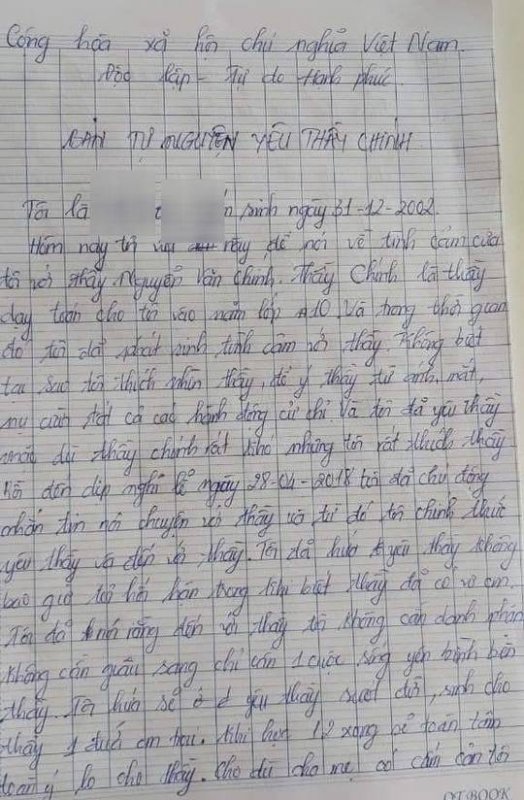 Cộng hòa xã hội chủ nghĩa Việt Nam
Độc lập - Tự do Hạnh phúc
BẢN TỰ NGUYỆN YÊU THẦY CHÍNH
Tôi là sinh ngày 31-12-2002
Hôm nay tôi này để nói về tình cảm của
tôi với thầy Nguyễn Văn Chính. Thầy Chính là thầy
dạy toán cho tôi vào năm lớp A10. Và trong thời gian
đó tôi đã phát sinh tình cảm với thầy. Không biết
tại sao tôi thích nhìn thầy, để ý thầy từ ánh mắt,
nụ cười tất cả các hành động cử chỉ. Và tôi đã yêu thầy
mặc dù thầy chính rất khó nhưng tôi rất thích thầy
đến dịp nghỉ lễ ngày 28-04-2018 tôi đã chủ động
nhắn tin nói chuyện với thầy và từ đó tôi chính thức
yêu thầy và đến với thầy. Tôi đã hứa yêu thầy không
bao giờ hối hận trong khi biết thầy đã có vợ con.
Tôi đã nói rằng đến với thầy tôi không cần danh phận
không cần giàu sang chỉ cần 1 cuộc sống yên bình bên
thầy. Tôi hứa sẽ yêu thầy suốt đời, sinh cho
thầy 1 đứa con trai. Khi học 12 xong sẽ toàn tâm
toàn ý lo cho thầy. Cho dù cha mẹ có cấm cản tôi
DT.BOOK